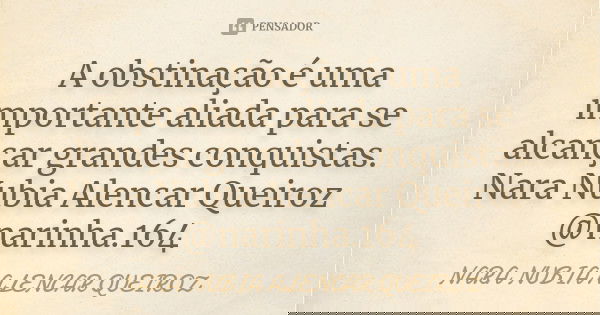 PENSADOR
A obstinação é uma
importante aliada para se
alcançar grandes conquistas.
Nara Nubia Alencar Queiroz
@narinha.164
NARA NUBIA ALENCAR QUEIROZ